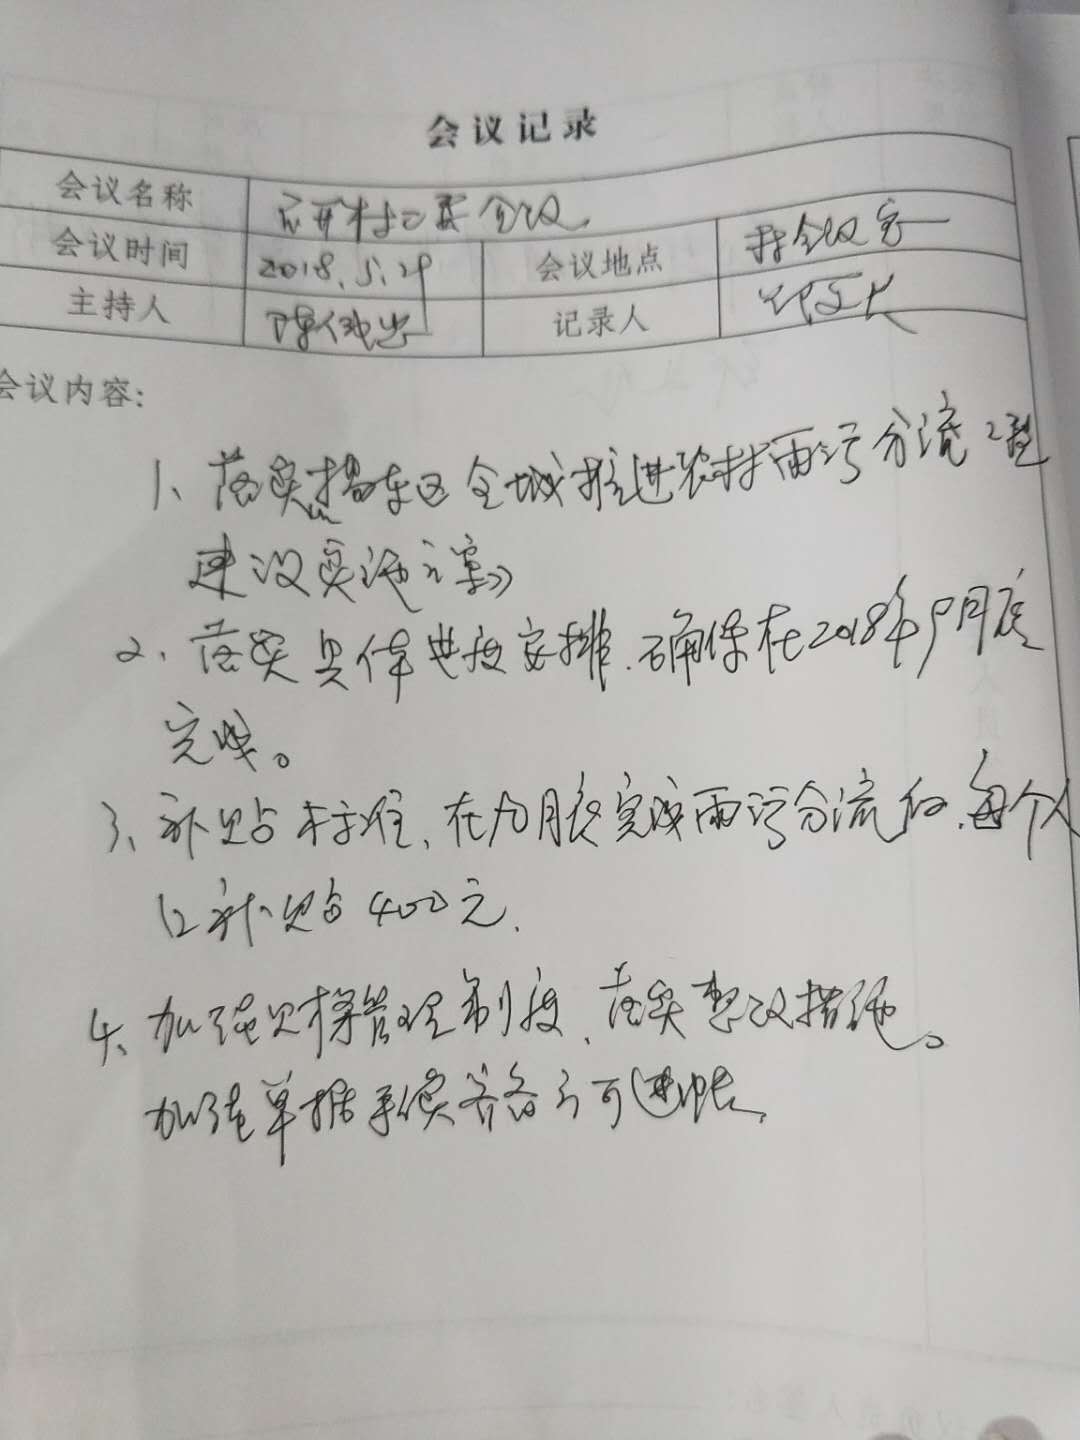 会议记录
会议名称 召开村二委会议
会议时间 2018.5.29 会议地点 村会议室
主持人 陈 记录人
会议内容:
1、落实揭东区全域推进农村雨污分流工程
建设实施方案》
2、落实具体进度安排,确保在2018年9月底
完成。
3、补贴标准,在九月底完成雨污分流的,每个人
口补贴400元.
4、加强账务管理制度,落实整改措施。
加强单据手续齐备方可进帐.